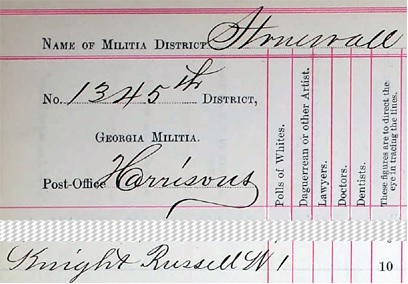 NAME OF MILITIA DISTRICT Stonewall
No. 1345th DISTRICT,
GEORGIA MILITIA.
Post-Office Harrisons
Polls of Whites.
Daguerrean or other Artist.
Lawyers.
Doctors.
Dentists.
These figures are to direct the
eye in tracing the lines.
Knight Russell W 1 10